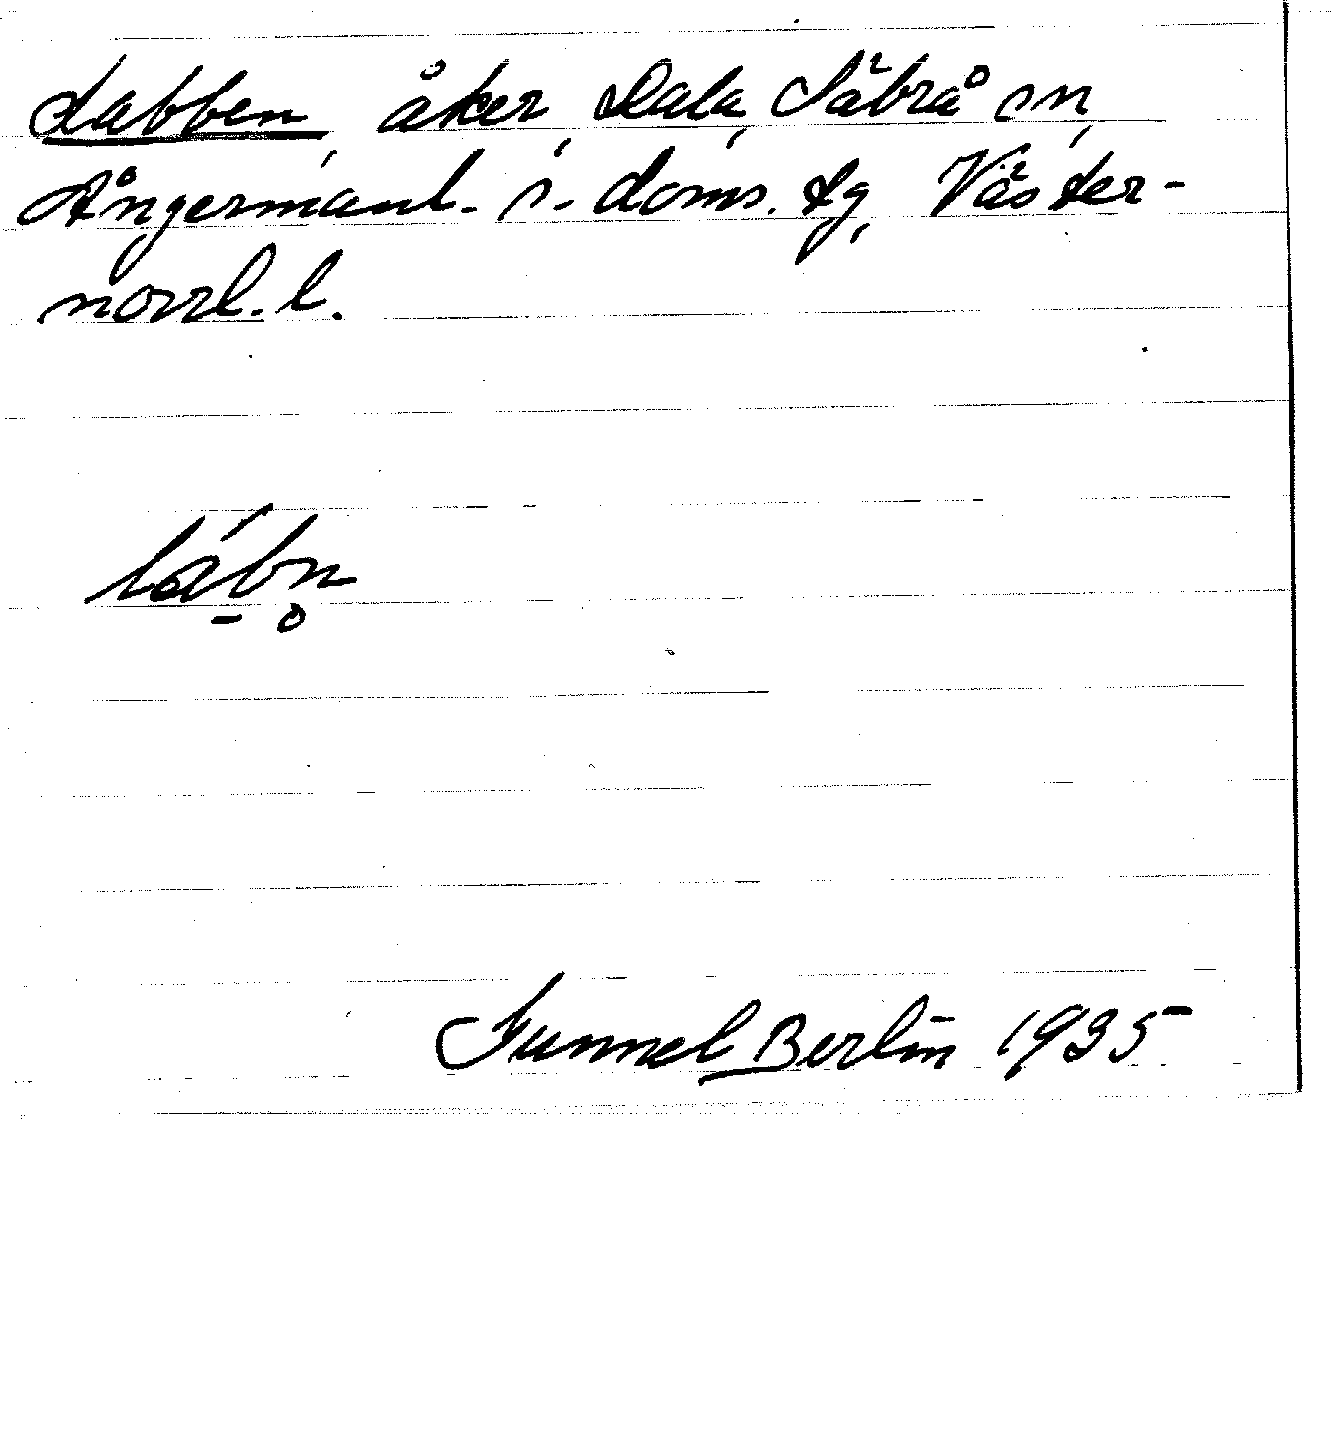 Labben, åker, Dala, Säbrå sn,
Ångermanl. s. doms. tg, Väster-
norrl. l.
Gunnel Berlin 1935